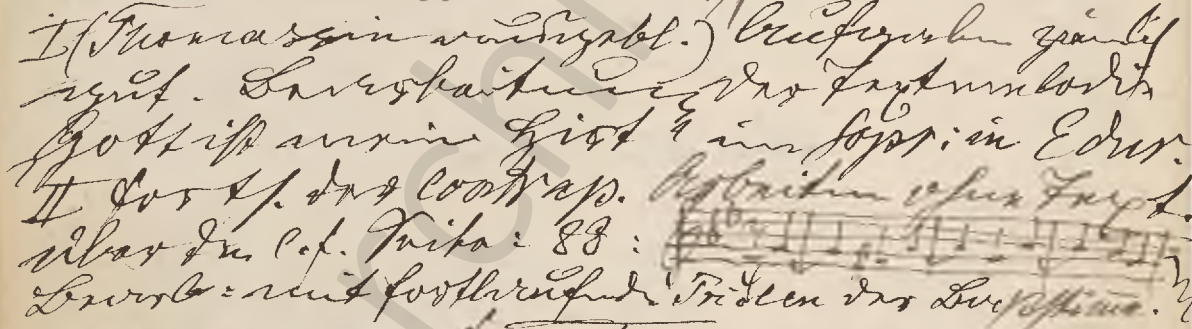 I (Thomassin ausgebl.) Aufgaben ziemlich
gut. Bearbeitung der Textmelodie
Gott ist mein Hirt" im Sopr: in Edur.
II Forts. des Contrap. Arbeiten ohne Text.
über den C.f. Seite: 88:
Bearb: mit fortlaufende Triolen der Baßstimme.